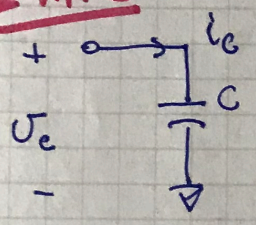 + i_c
C
v_c
-